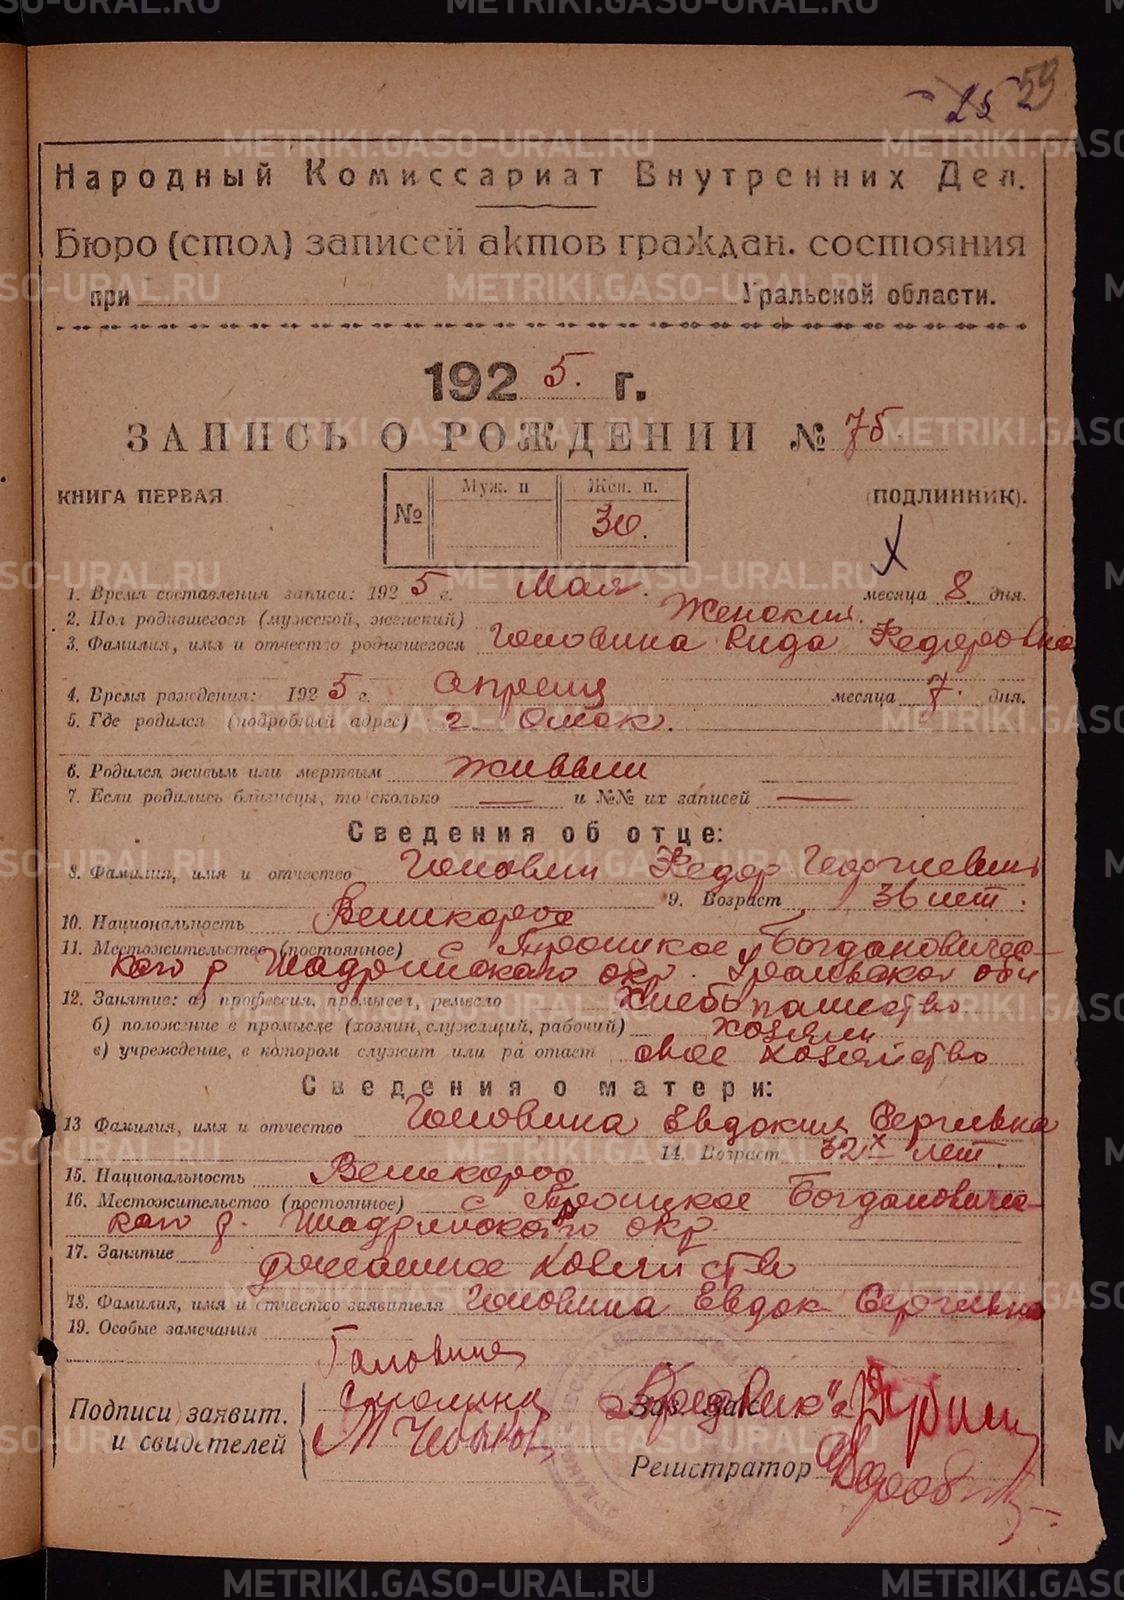 25 59
Народный Комиссариат Внутренних Дел.
Бюро (стол) записей актов граждан. состояния
при Уральской области.
1925. г.
ЗАПИСЬ О РОЖДЕНИИ № 75.
КНИГА ПЕРВАЯ (ПОДЛИННИК).
№ Муж. п Жен. п.
30.
1. Время составления записи: 1925 г. Мая. месяца 8 дня.
2. Пол родившегося (мужской, женский) Женский.
3. Фамилия, имя и отчество родившегося Головина Лида Федоровна
4. Время рождения: 1925 г. Апреля месяца 7. дня.
5. Где родился (подробный адрес) г. Омск.
6. Родился живым или мертвым живым
7. Если родились близнецы, то сколько — и №№ их записей —
Сведения об отце:
8. Фамилия, имя и отчество Головин Федор Георгиевич
9. Возраст 36 лет.
10. Национальность Великоросс
11. Местожительство (постоянное) с Троицкое Богдановичес-
кого р Шадринского окр. Уральской обл
12. Занятие: а) профессия, промысел, ремесло Хлебопашество
б) положение в промысле (хозяин, служащий, рабочий) хозяин
в) учреждение, в котором служит или работает свое хозяйство
Сведения о матери:
13 Фамилия, имя и отчество Головина Евдокия Сергивна
14. Возраст 32 лет.
15. Национальность Великоросс
16. Местожительство (постоянное) с Троицкое Богдановичес-
кого р. Шадринского окр.
17. Занятие домашнее хозяйство
18. Фамилия, имя и отчество заявителя Головина Евдок Сергивна
19. Особые замечания
Головина
Подписи заявит.
и свидетелей
Зав. Загс
Регистратор
METRIKI.GASO-URAL.RU